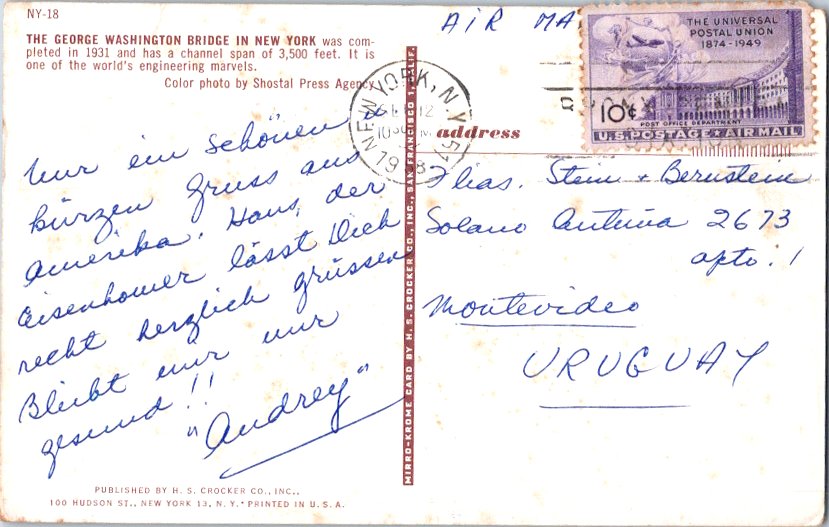 NY-18
THE GEORGE WASHINGTON BRIDGE IN NEW YORK was com-
pleted in 1931 and has a channel span of 3,500 feet. It is
one of the world's engineering marvels.
Color photo by Shostal Press Agency
Nur ein schönen u
kürzen Gruss aus
Amerika. Hans, der
Eisenhower lässt Dich
recht herzlich grüssen
Bleibt mir nur
gesund!!
"Audrey"
PUBLISHED BY H. S. CROCKER CO., INC.,
100 HUDSON ST., NEW YORK 13, N. Y. • PRINTED IN U. S. A.
MIRRO-KROME CARD BY H. S. CROCKER CO., INC., SAN FRANCISCO 1, CALIF.
AIR MA
THE UNIVERSAL
POSTAL UNION
1874-1949
10¢
POST OFFICE DEPARTMENT
U.S. POSTAGE AIR MAIL
NEW YORK, N.Y.
12
address
Flias. Stein + Bernstein
Solano Antuña 2673
apto. 1
Montevideo
URUGUAY